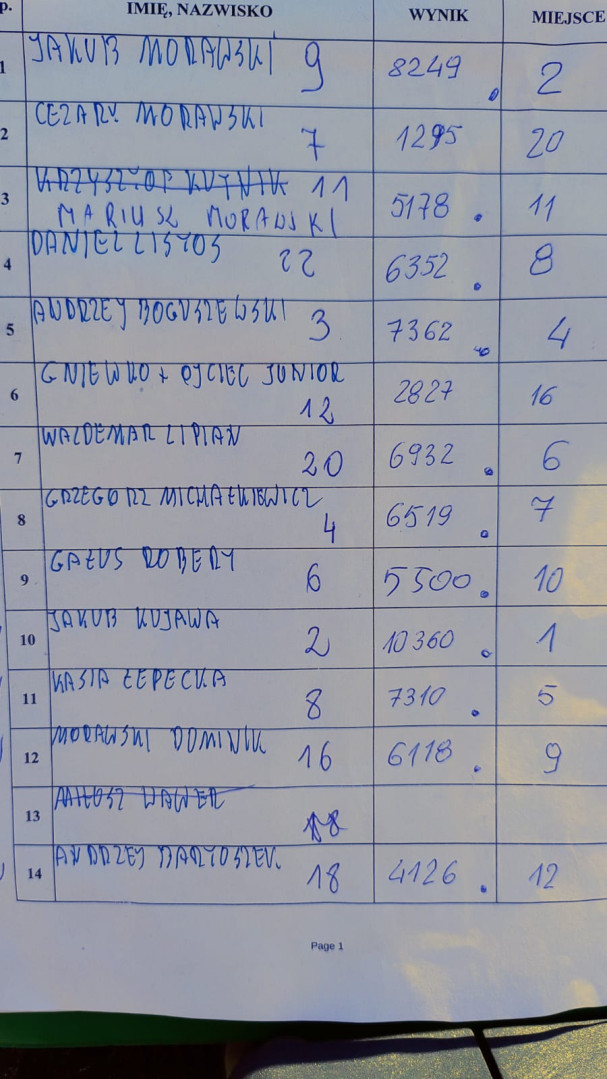 p. IMIĘ, NAZWISKO WYNIK MIEJSCE
1 JAKUB MORAWSKI 9 8249 . 2
2 CEZARY MORAWSKI 7 1295 20
3 KRZYSZTOF KUTNIK 11 5178 . 11
MARIUSZ MORAWSKI
4 DANIEL LISTOS 22 6352 . 8
5 ANDRZEJ BOGUSZEWSKI 3 7362 4
6 GNIEWKO + OJCIEC JUNIOR 12 2827 16
7 WALDEMAR LIPIAN 20 6932 . 6
8 GRZEGORZ MICHAŁKIEWICZ 4 6519 . 7
9 GAŁUS ROBERT 6 5500 . 10
10 JAKUB KUJAWA 2 10360 . 1
11 KASIA ŁEPECKA 8 7310 . 5
12 MORAWSKI DOMINIK 16 6118 . 9
13 MIŁOSZ WAWER 18
14 ANDRZEJ BARTOSZEW. 18 4126 . 12
Page 1